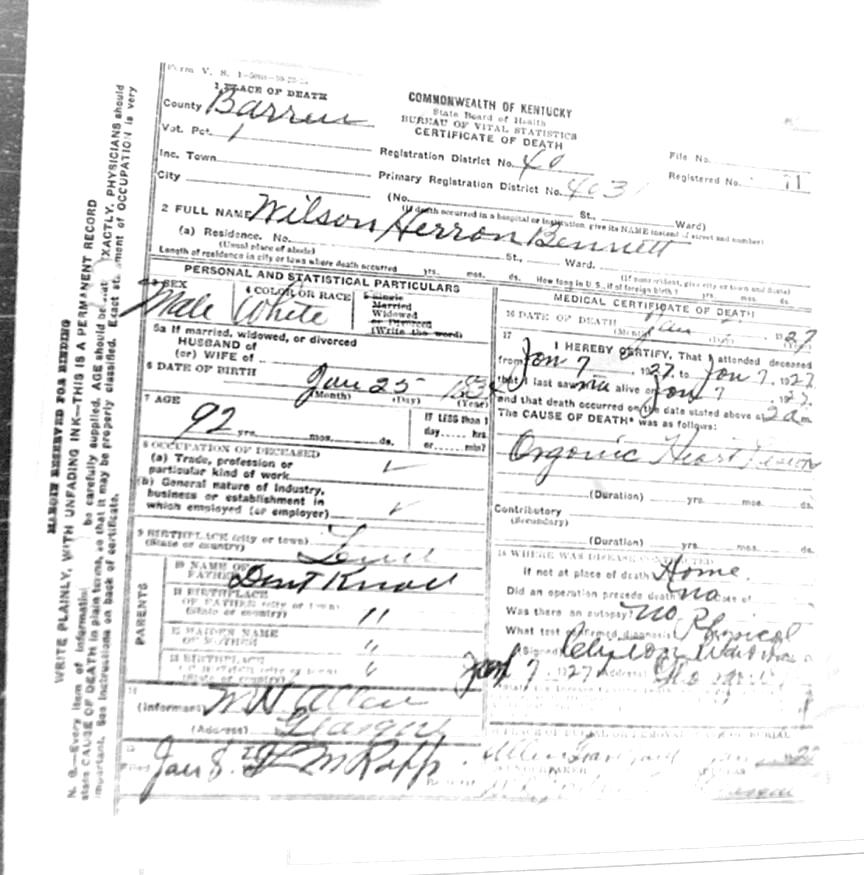 Form V. S. 1
1 PLACE OF DEATH
County Barren
Vot. Pct. 1
Inc. Town
City
COMMONWEALTH OF KENTUCKY
State Board of Health
BUREAU OF VITAL STATISTICS
CERTIFICATE OF DEATH
Registration District No. 40
Primary Registration District No. 4031
File No.
Registered No. 71
(No. St., Ward)
(If death occurred in a hospital or institution, give its NAME instead of street and number)
2 FULL NAME Wilson Herron Bennett
(a) Residence. No. St., Ward.
(Usual place of abode) (If nonresident, give city or town and State)
Length of residence in city or town where death occurred yrs. mos. ds. How long in U. S., if of foreign birth? yrs. mos. ds.
PERSONAL AND STATISTICAL PARTICULARS
3 SEX
Male
4 COLOR OR RACE
White
5 Single
Married
Widowed
or Divorced
(Write the word)
5a If married, widowed, or divorced
HUSBAND of
(or) WIFE of
6 DATE OF BIRTH
Jan 25 183
(Month) (Day) (Year)
7 AGE
92 yrs. mos. ds.
IF LESS than 1
day hrs.
or min?
8 OCCUPATION OF DECEASED
(a) Trade, profession or
particular kind of work
(b) General nature of industry,
business or establishment in
which employed (or employer)
9 BIRTHPLACE (city or town)
(State or country) Tenn
PARENTS
10 NAME OF
FATHER Dont Know
11 BIRTHPLACE
OF FATHER (city or town)
(State or country) "
12 MAIDEN NAME
OF MOTHER "
13 BIRTHPLACE
OF MOTHER (city or town)
(State or country) "
14
(Informant) W H Allen
(Address) Glasgow
15
Jan 8. 27 M Rapp
MEDICAL CERTIFICATE OF DEATH
16 DATE OF DEATH Jan 1927
(Month) (Day) (Year)
17
I HEREBY CERTIFY, That I attended deceased
from Jan 7, 1927, to Jan 7, 1927
that I last saw alive on Jan 7, 1927
and that death occurred on the date stated above at 2 a m.
The CAUSE OF DEATH* was as follows:
Organic Heart Lesion
(Duration) yrs. mos. ds.
Contributory
(Secondary)
(Duration) yrs. mos. ds.
18 WHERE WAS DISEASE CONTRACTED
If not at place of death Home.
Did an operation precede death no Date of
Was there an autopsy? no
What test confirmed diagnosis Physical
(Signed)
Jan 7, 1927 (Address)
PLACE OF BURIAL OR REMOVAL DATE OF BURIAL
Allen Graveyard
UNDERTAKER
MARGIN RESERVED FOR BINDING
WRITE PLAINLY, WITH UNFADING INK—THIS IS A PERMANENT RECORD
N. B.—Every item of information be carefully supplied. AGE should be EXACTLY. PHYSICIANS should
state CAUSE OF DEATH in plain terms, so that it may be properly classified. Exact statement of OCCUPATION is very
important. See instructions on back of certificate.